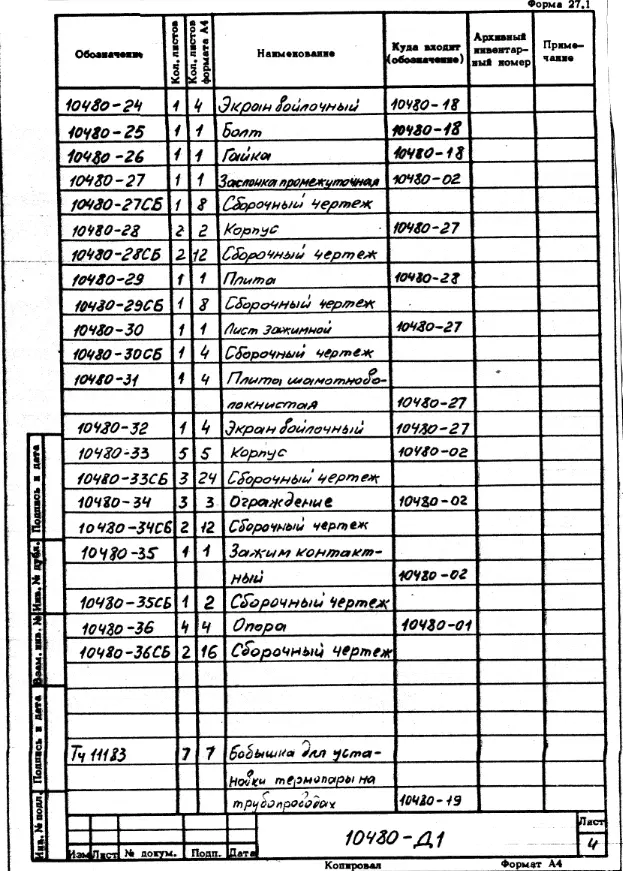 Форма 27.1
Обозначение Кол. листов Кол. листов формата А4 Наименование Куда входит (обозначение) Архивный инвентарный номер Примечание
10480-24 1 4 Экран войлочный 10480-18
10480-25 1 1 Болт 10480-18
10480-26 1 1 Гайка 10480-18
10480-27 1 1 Заслонка промежуточная 10480-02
10480-27СБ 1 8 Сборочный чертеж
10480-28 2 2 Корпус 10480-27
10480-28СБ 2 12 Сборочный чертеж
10480-29 1 1 Плита 10480-28
10480-29СБ 1 8 Сборочный чертеж
10480-30 1 1 Лист зажимной 10480-27
10480-30СБ 1 4 Сборочный чертеж
10480-31 1 4 Плита шамотново-
локнистая 10480-27
10480-32 1 4 Экран войлочный 10480-27
10480-33 5 5 Корпус 10480-02
10480-33СБ 3 24 Сборочный чертеж
10480-34 3 3 Ограждение 10480-02
10480-34СБ 2 12 Сборочный чертеж
10480-35 1 1 Зажим контакт-
ный 10480-02
10480-35СБ 1 2 Сборочный чертеж
10480-36 4 4 Опора 10480-01
10480-36СБ 2 16 Сборочный чертеж
Тч 11183 7 7 Бобышка для уста-
новки термопары на
трубопроводах 10480-19
Инв. № подл. Подпись и дата Взам. инв. № Инв. № дубл. Подпись и дата
10480-Д1
Лист
4
Изм Лист № докум. Подп. Дата
Копировал Формат А4